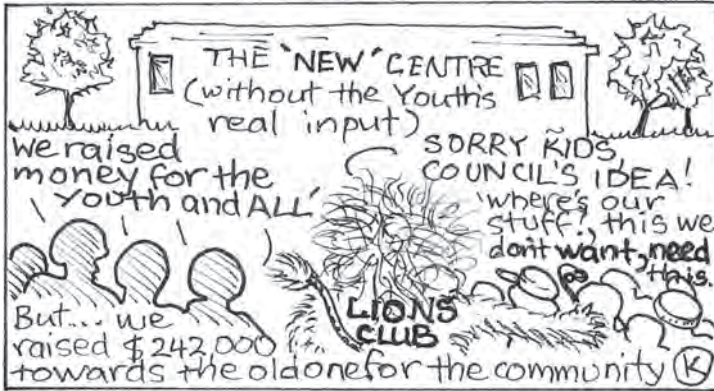 THE 'NEW' CENTRE
(without the Youth's
real input)
we raised
money for the
youth and ALL'
SORRY KIDS,
COUNCIL'S IDEA!
'where's our
stuff?, this we
don't want, need
this.
LIONS
CLUB
But... we
raised $242,000
towards the old one for the community
K